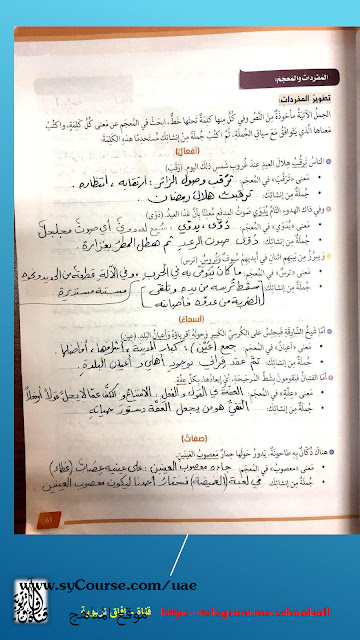 المفردات والمعجم:
تطوير المفردات:
الجمل الآتية مأخوذة من النص وفي كل منها كلمة تحتها خط، ابحث في المعجم عن معنى كل كلمة، واكتب
معناها الذي يتوافق مع سياق الجملة، ثم اكتب جملة من إنشائك مستخدما هذه الكلمة:
(أفعال)
الناس تترقب هلال العيد عند غروب شمس ذلك اليوم. (رقب)
معنى «تترقب» في المعجم: ترقب وصول الزائر: ارتقابه، انتظاره.
جملة من إنشائك: ترقبت هلال رمضان
وفي ذاك الهدوء التام يدوي صوت المدفع معلنا بأن غدا العيد. (دوى)
معنى «يدوي» في المعجم: دوى، يدوي: سمع له دوي أي صوت مجلجل
جملة من إنشائك: دوى صوت الرعد ثم هطل المطر بغزارة.
يبرز من بينهم اثنان في أيديهم سيوف وتروس. (ترس)
معنى «ترس» في المعجم: ما كان يتوقى به في الحرب، وفي الآلة قطعة من الحديد ونحوه
جملة من إنشائك: سقط ترسه من يده وتلقى مسننة مستديرة.
الضربة من عدوه فأصابته
(أسماء)
أما شيخ الشارقة فيجلس على الكرسي الكبير وحوله أقرباؤه وأعيان البلد. (عين)
معنى «أعيان» في المعجم: جمع (عين): كبار المدينة، أشرافها، أفاضلها
جملة من إنشائك: تم عقد قران بوجود أهلي و أعيان البلدة.
أما الفتيان فيقومون بشط المرجيحة، أي إبعادها، بكل عفة.
معنى «عفة» في المعجم: العفة في القول والفعل: الامتناع والكف عما لا يحل قولا أو فعلا
جملة من إنشائك: التقي هو من يجعل العفة دستور حياته
(صفات)
هناك دكان به طاحونة، يدور حولها حمار معصوب العينين.
معنى «معصوب» في المعجم: جاء معصوب العينين: على عينيه عصاب (غطاء)
جملة من إنشائك: في لعبة (الغميضة) نختار أحدنا ليكون معصوب العينين.
www.syCourse.com/uae
موقع المنهج
قناة - آفاق تربوية